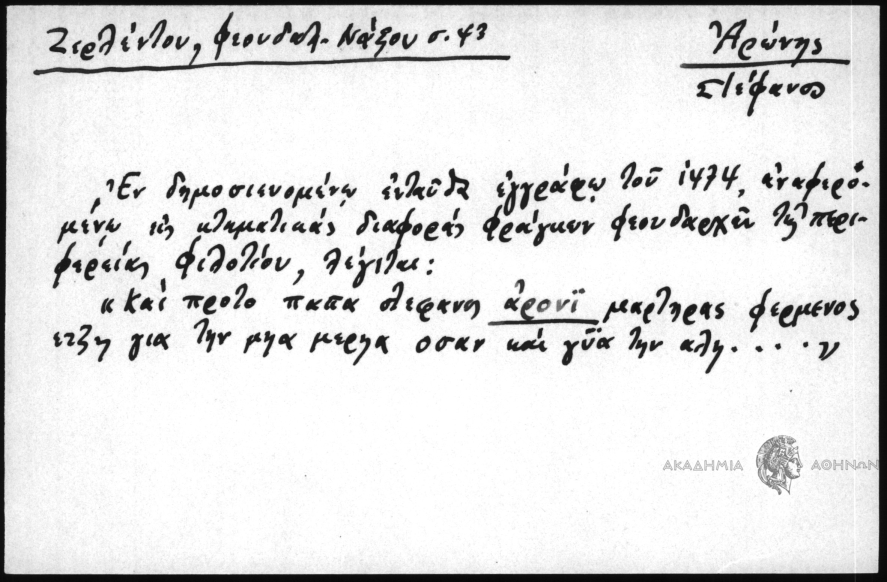 Ζερλέντου, φεουδαλ. Νάξου σ. 43
Ἀρώνης
Στέφανος
Ἐν δημοσιευομένῳ ἐνταῦθα ἐγγράφῳ τοῦ 1474, ἀναφερο-
μένῳ εἰς κτηματικάς διαφοράς φράγκων φεουδαρχῶν τῆς περι-
φερείας Φιλοτίου, λέγεται:
"Και προτο παπα στεφανης ἀρονϊ μαρτηρας φερμενος
ετζη για την μηα μερηα οσαν και γϋα την αλη....."
ΑΚΑΔΗΜΙΑ ΑΘΗΝΩΝ